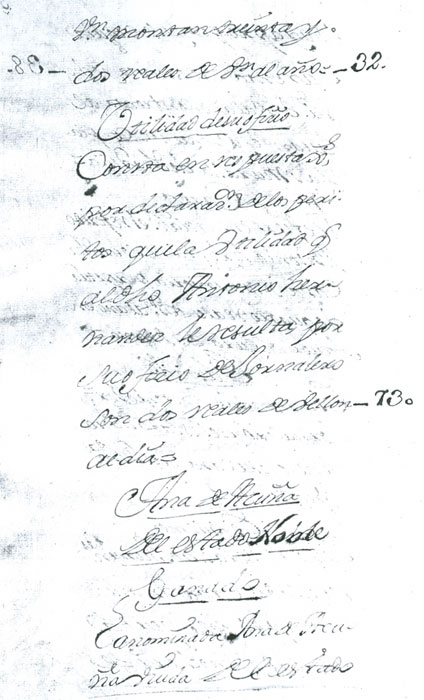 Dn. montan treinta y
dos reales de Vn. al año= — 32.
Utilidad de su ofizio
Consta en respuesta dha
por declarazn. de los peri-
tos que la utilidad q
al dho. Antonio her-
nandez le resulta por
su ofizio de Jornalero
son dos reales de Vellon — 73.
al dia=
Ana de Acuña
Del estado Noble
Ganado
La nominada Ana de Acu-
ña viuda Del estado